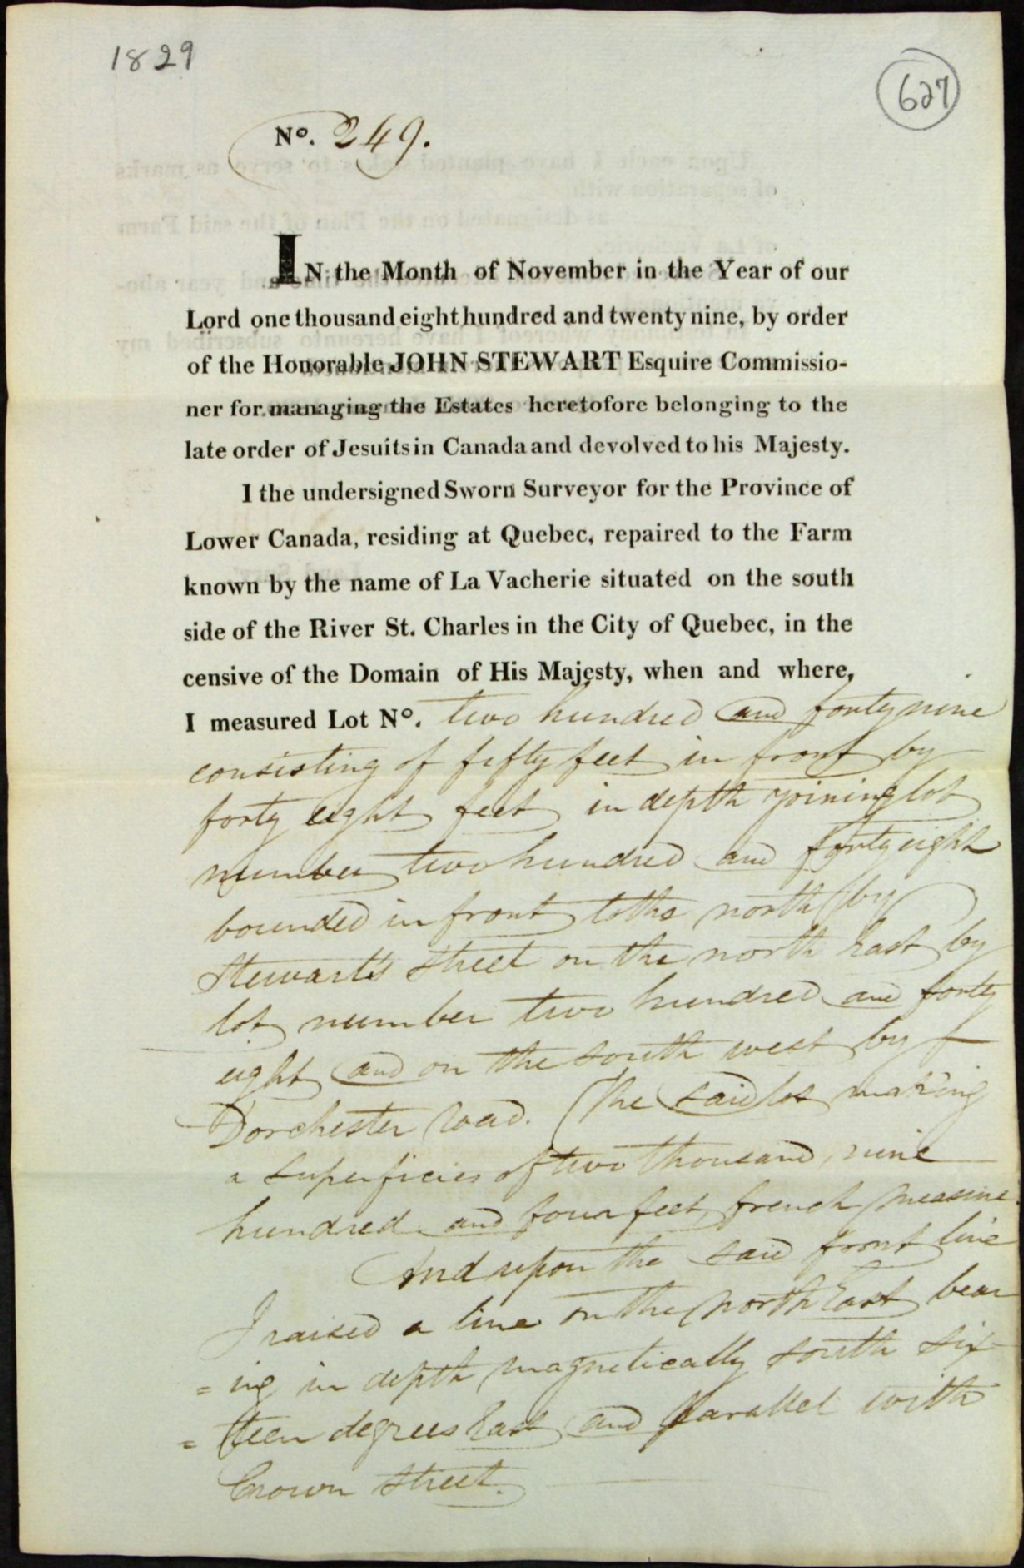 1829
627
No. 249.
IN the Month of November in the Year of our
Lord one thousand eight hundred and twenty nine, by order
of the Honorable JOHN STEWART Esquire Commissio-
ner for managing the Estates heretofore belonging to the
late order of Jesuits in Canada and devolved to his Majesty.
I the undersigned Sworn Surveyor for the Province of
Lower Canada, residing at Quebec, repaired to the Farm
known by the name of La Vacherie situated on the south
side of the River St. Charles in the City of Quebec, in the
censive of the Domain of His Majesty, when and where,
I measured Lot No. two hundred and forty nine
consisting of fifty feet in front by
forty eight feet in depth joining lot
number two hundred and forty eight
bounded in front to the north by
Stewart's Street on the north East by
lot number two hundred and forty
eight and on the south west by
Dorchester Road. The said lot making
a superficies of two thousand, nine
hundred and four feet french measure.
And upon the said front line
I raised a line on the North East bear
= ing in depth magnetically south six
= teen degrees East and parallel with
Crown Street.